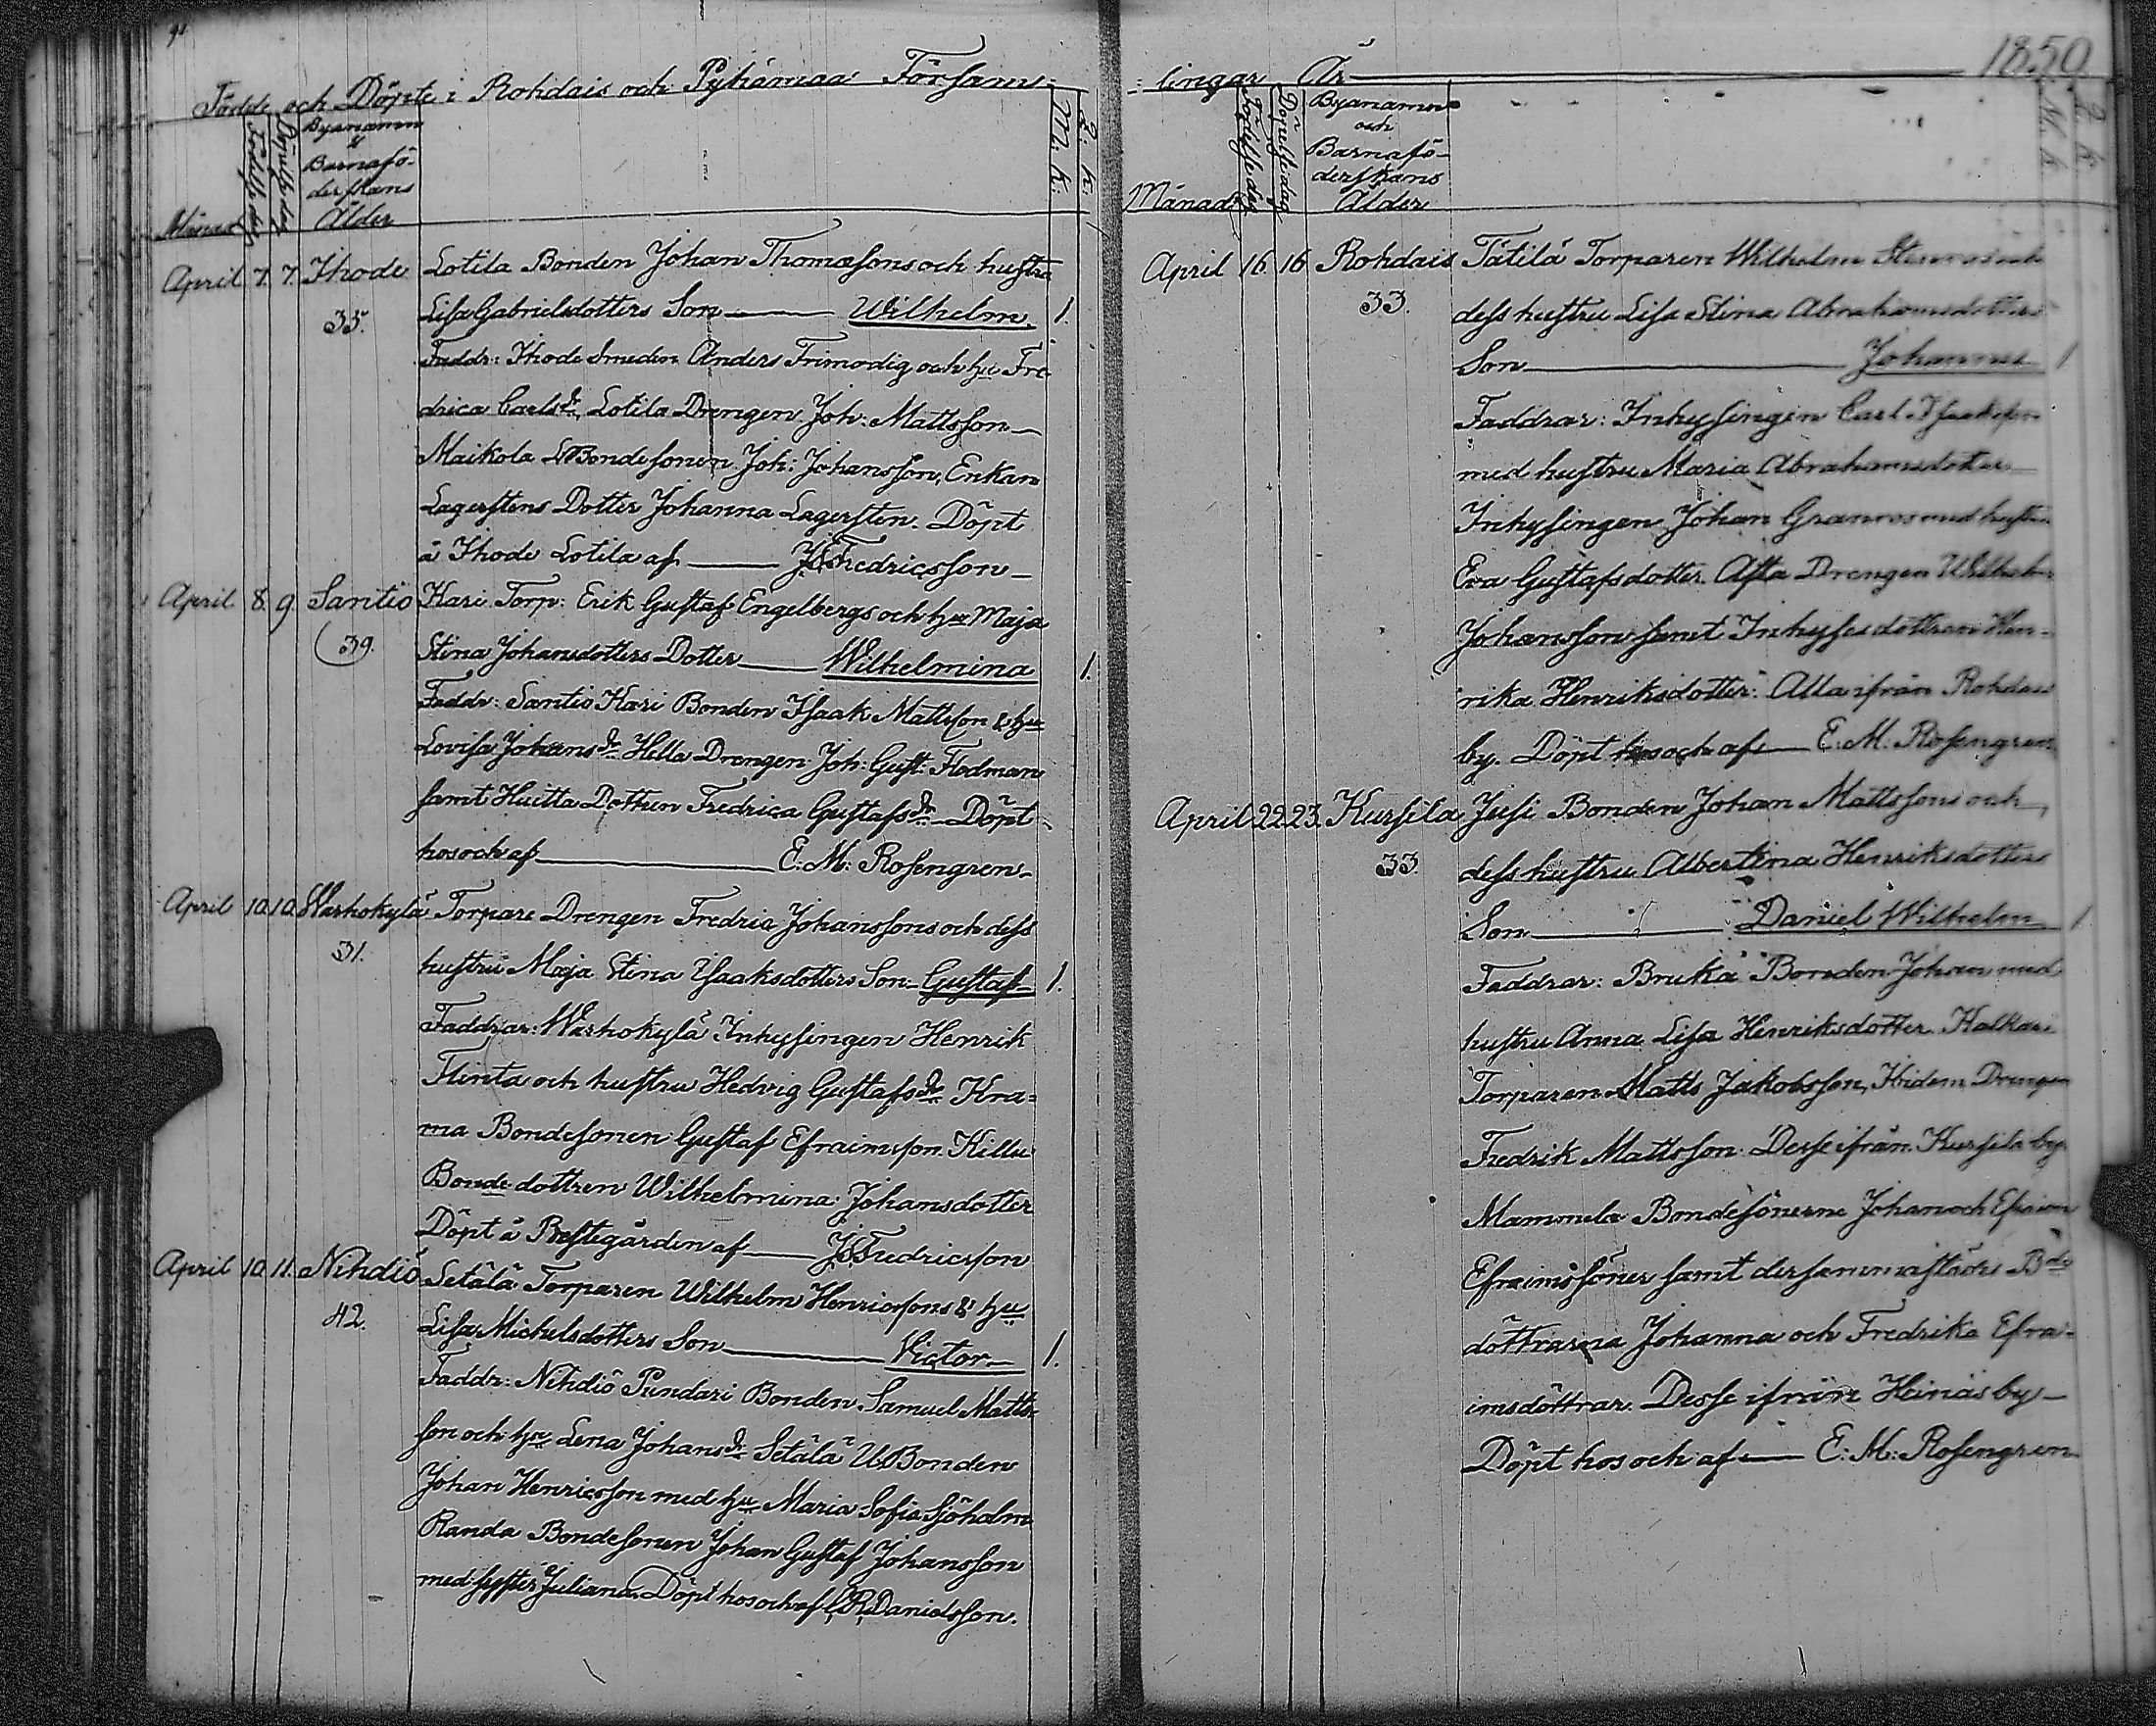 Födde och Döpte i Rohdais och Pyhämaa Församl-
Månad
Födelse dag
Döpelse dag
Byanamn
&
Barnafö-
derskans
Ålder
M. k.
Q. k.
April 7. 7. Ihode Lotila Bonden Johan Thomæsons och hustru
35. Lisa Gabrielsdotters Son Wilhelm. 1.
Faddr: Ihode Smeden Anders Frimodig och hu Fre-
drica Carlsdr Lotila Drengen Joh: Mattsson
Maikola Bondesonen Joh: Johansson, Enkan
Lagerstens Dotter Johanna Lagersten. Döpt
å Ihode Lotila af Fredricsson
April 8. 9. Santio Hari Torp: Erik Gustaf Engelbergs och hu Maja
39. Stina Johansdotters Dotter Wilhelmina 1.
Faddr: Santio Hari Bonden Isaak Mattsson & hu
Lovisa Johansdr Hella Drengen Joh: Gust: Flodman
samt Huitta Dottren Fredrica Gustafsdr Döpt
hos och af E: M: Rosengren
April 10. 10. Warhokylä Torpare Drengen Fredric Johanssons och dess
31. hustru Maja Stina Isaaksdotters Son Gustaf 1.
Faddrar: Warhokylä Inhysingen Henrik
Flinta och hustru Hedvig Gustafsdr Kra-
ma Bondesonen Gustaf Efraimsson Killu
Bonde dottren Wilhelmina Johansdotter
Döpt å Prestegården af Fredricsson
April 10. 11. Nihdiö Setälä Torparen Wilhelm Henricsons & hu
42. Lisa Michelsdotters Son Victor 1.
Faddr: Nihdiö Pundari Bonden Samuel Matts-
son och hu Lena Johansdr Setälä U.Bonden
Johan Henricsson med hu Maria Sofia Sjöholm
Randa Bondesonen Johan Gustaf Johansson
med syster Juliana. Döpt hos och af Danielsson.
: lingar År 1850
Månad
Födelse dag
Döpelse dag
Byanamn
och
Barnafö-
derskans
Ålder
M. k.
Q. k.
April 16 16 Rohdais Tätilä Torparen Wilhelm Stenroos och
33. dess hustru Lisa Stina Abrahamsdotters
Son Johannes 1
Faddrar: Inhysingen Carl Isaaksson
med hustru Maria Abrahamsdotter
Inhysingen Johan Granroos med hustru
Eva Gustafsdotter. Asta Drengen Wilhelm
Johansson samt Inhyses dottren Hen-
rika Henriksdotter: Alla ifrån Rohdais
by. Döpt hos och af E: M: Rosengren
April 22 23. Kursila Jusi Bonden Johan Mattssons och
33. dess hustru Albertina Henriksdotters
Son Daniel Wilhelm 1
Faddrar: Bruka Bonden Johan med
hustru Anna Lisa Henriksdotter. Kalkari
Torparen Matts Jakobsson, Ibidem Drengen
Fredrik Mattsson. Desse ifrån Kursila by.
Mammela Bondesönerne Johan och Efraim
Efraimssöner samt dersammastädes Bde
döttrarna Johanna och Fredrika Efra-
imsdöttrar. Desse ifrån Heinäs by
Döpt hos och af E: M: Rosengren